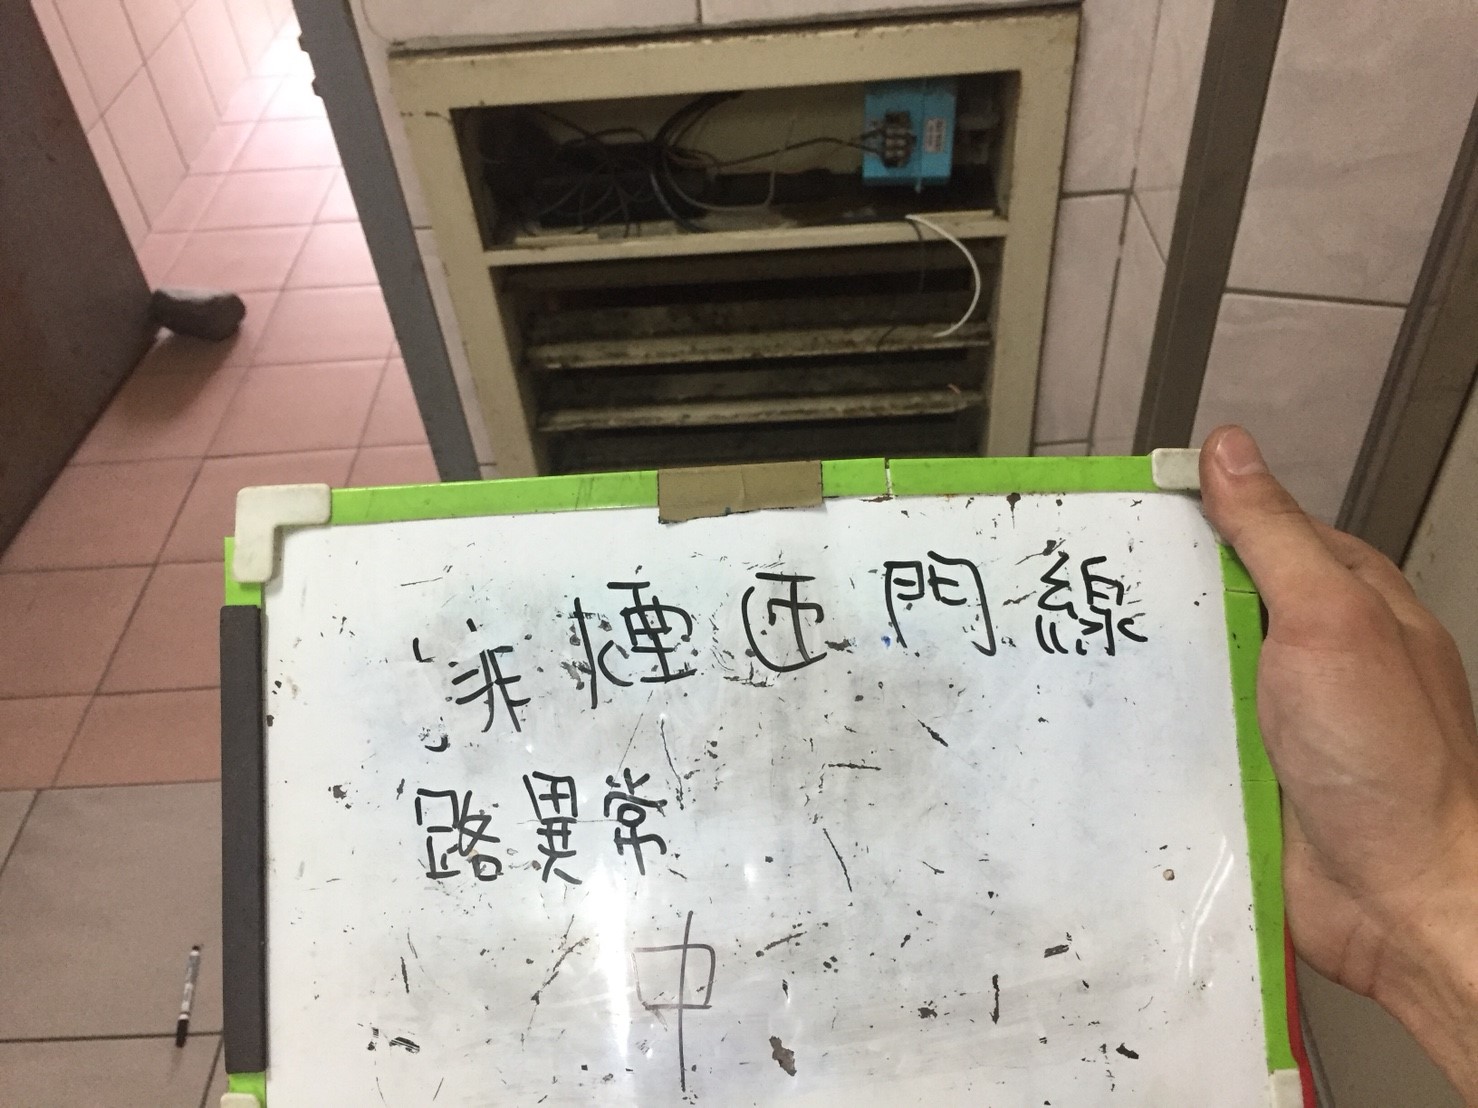 排煙匣門線
路異常
中